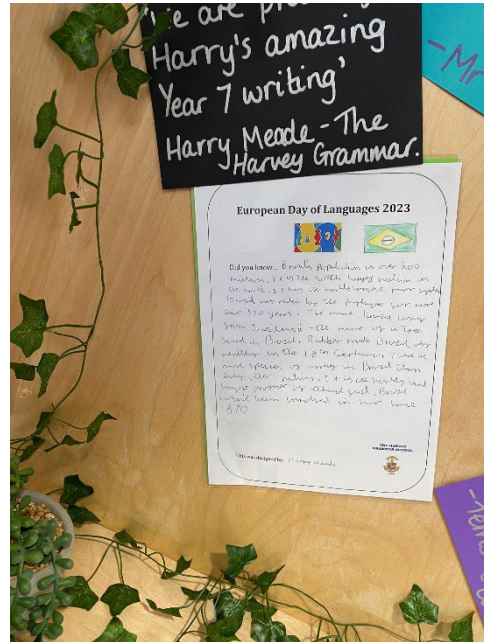 We are
Harry's amazing
Year 7 writing'
Harry Meade - The
Harvey Grammar.
-Mr
European Day of Languages 2023
Did you know... Brazil's Population is over 200
million. It is the largest nation in
the world. It has the worlds largest river system
Brazil was ruled by the for more
over 320 years. The name Brazil comes
from - the name of a tree
in Brazil. Rubber made Brazil very
wealthy in the Century. There is
more species of monkey in Brazil than
any other nation. It is the worlds 2nd
largest producer of ethanol fuel. Brazil
hasn't been involved in war since
1870
This was designed by: Harry Meade
THE HARVEY
GRAMMAR SCHOOL